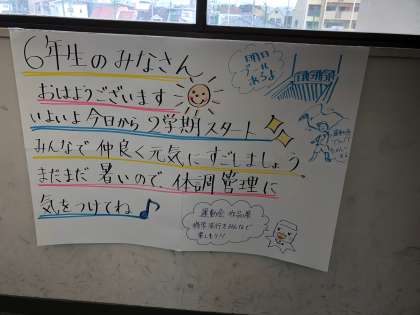 6年生のみなさん
おはようございます
いよいよ今日から2学期スタート
みんなで仲良く元気にすごしましょう。
まだまだ暑いので、体調管理に
気をつけてね♪
明日
プール
あるよ
運動会
運動会 作品展
修学旅行もみんなで
楽しもう!!